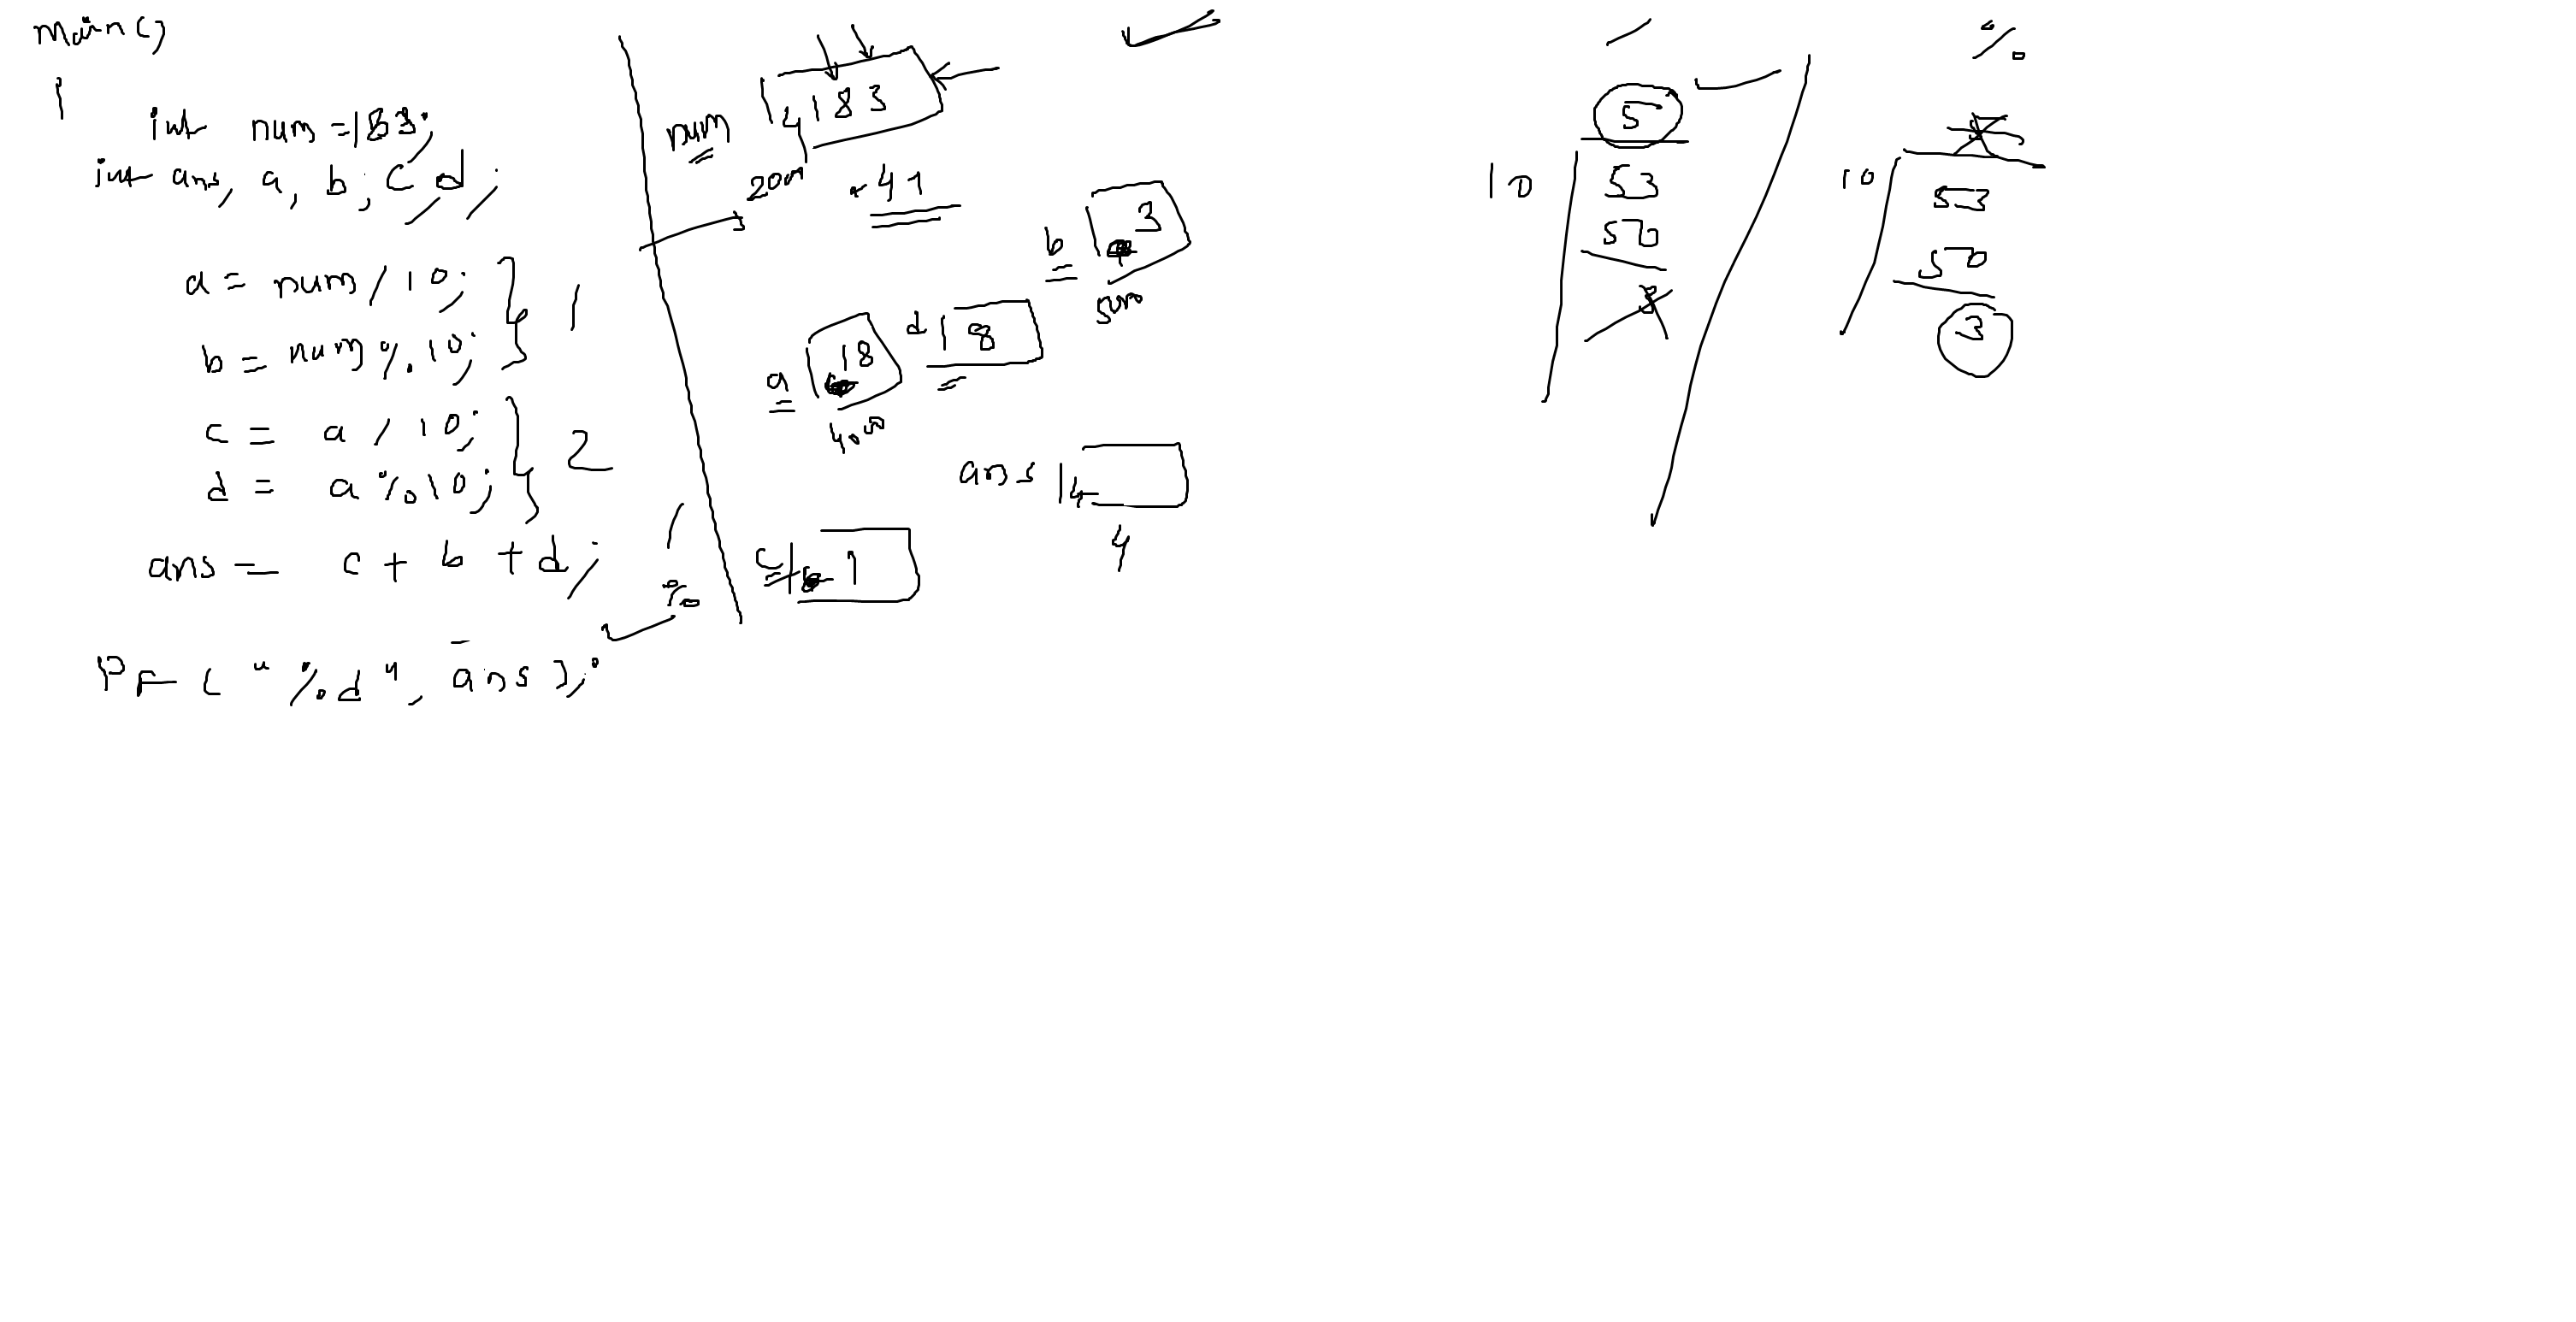 main()
{
int num = 183;
int ans, a, b, c, d;
a = num / 10; } 1
b = num % 10;
c = a / 10; } 2
d = a % 10;
ans = c + b + d;
/
%
PF ( " %d ", ans );
num 4 183
2000
41
b 3
5000
a 18
4000
d 8
ans 4
4
c 1
/
5
10 53
50
3
%
5
10 53
50
3